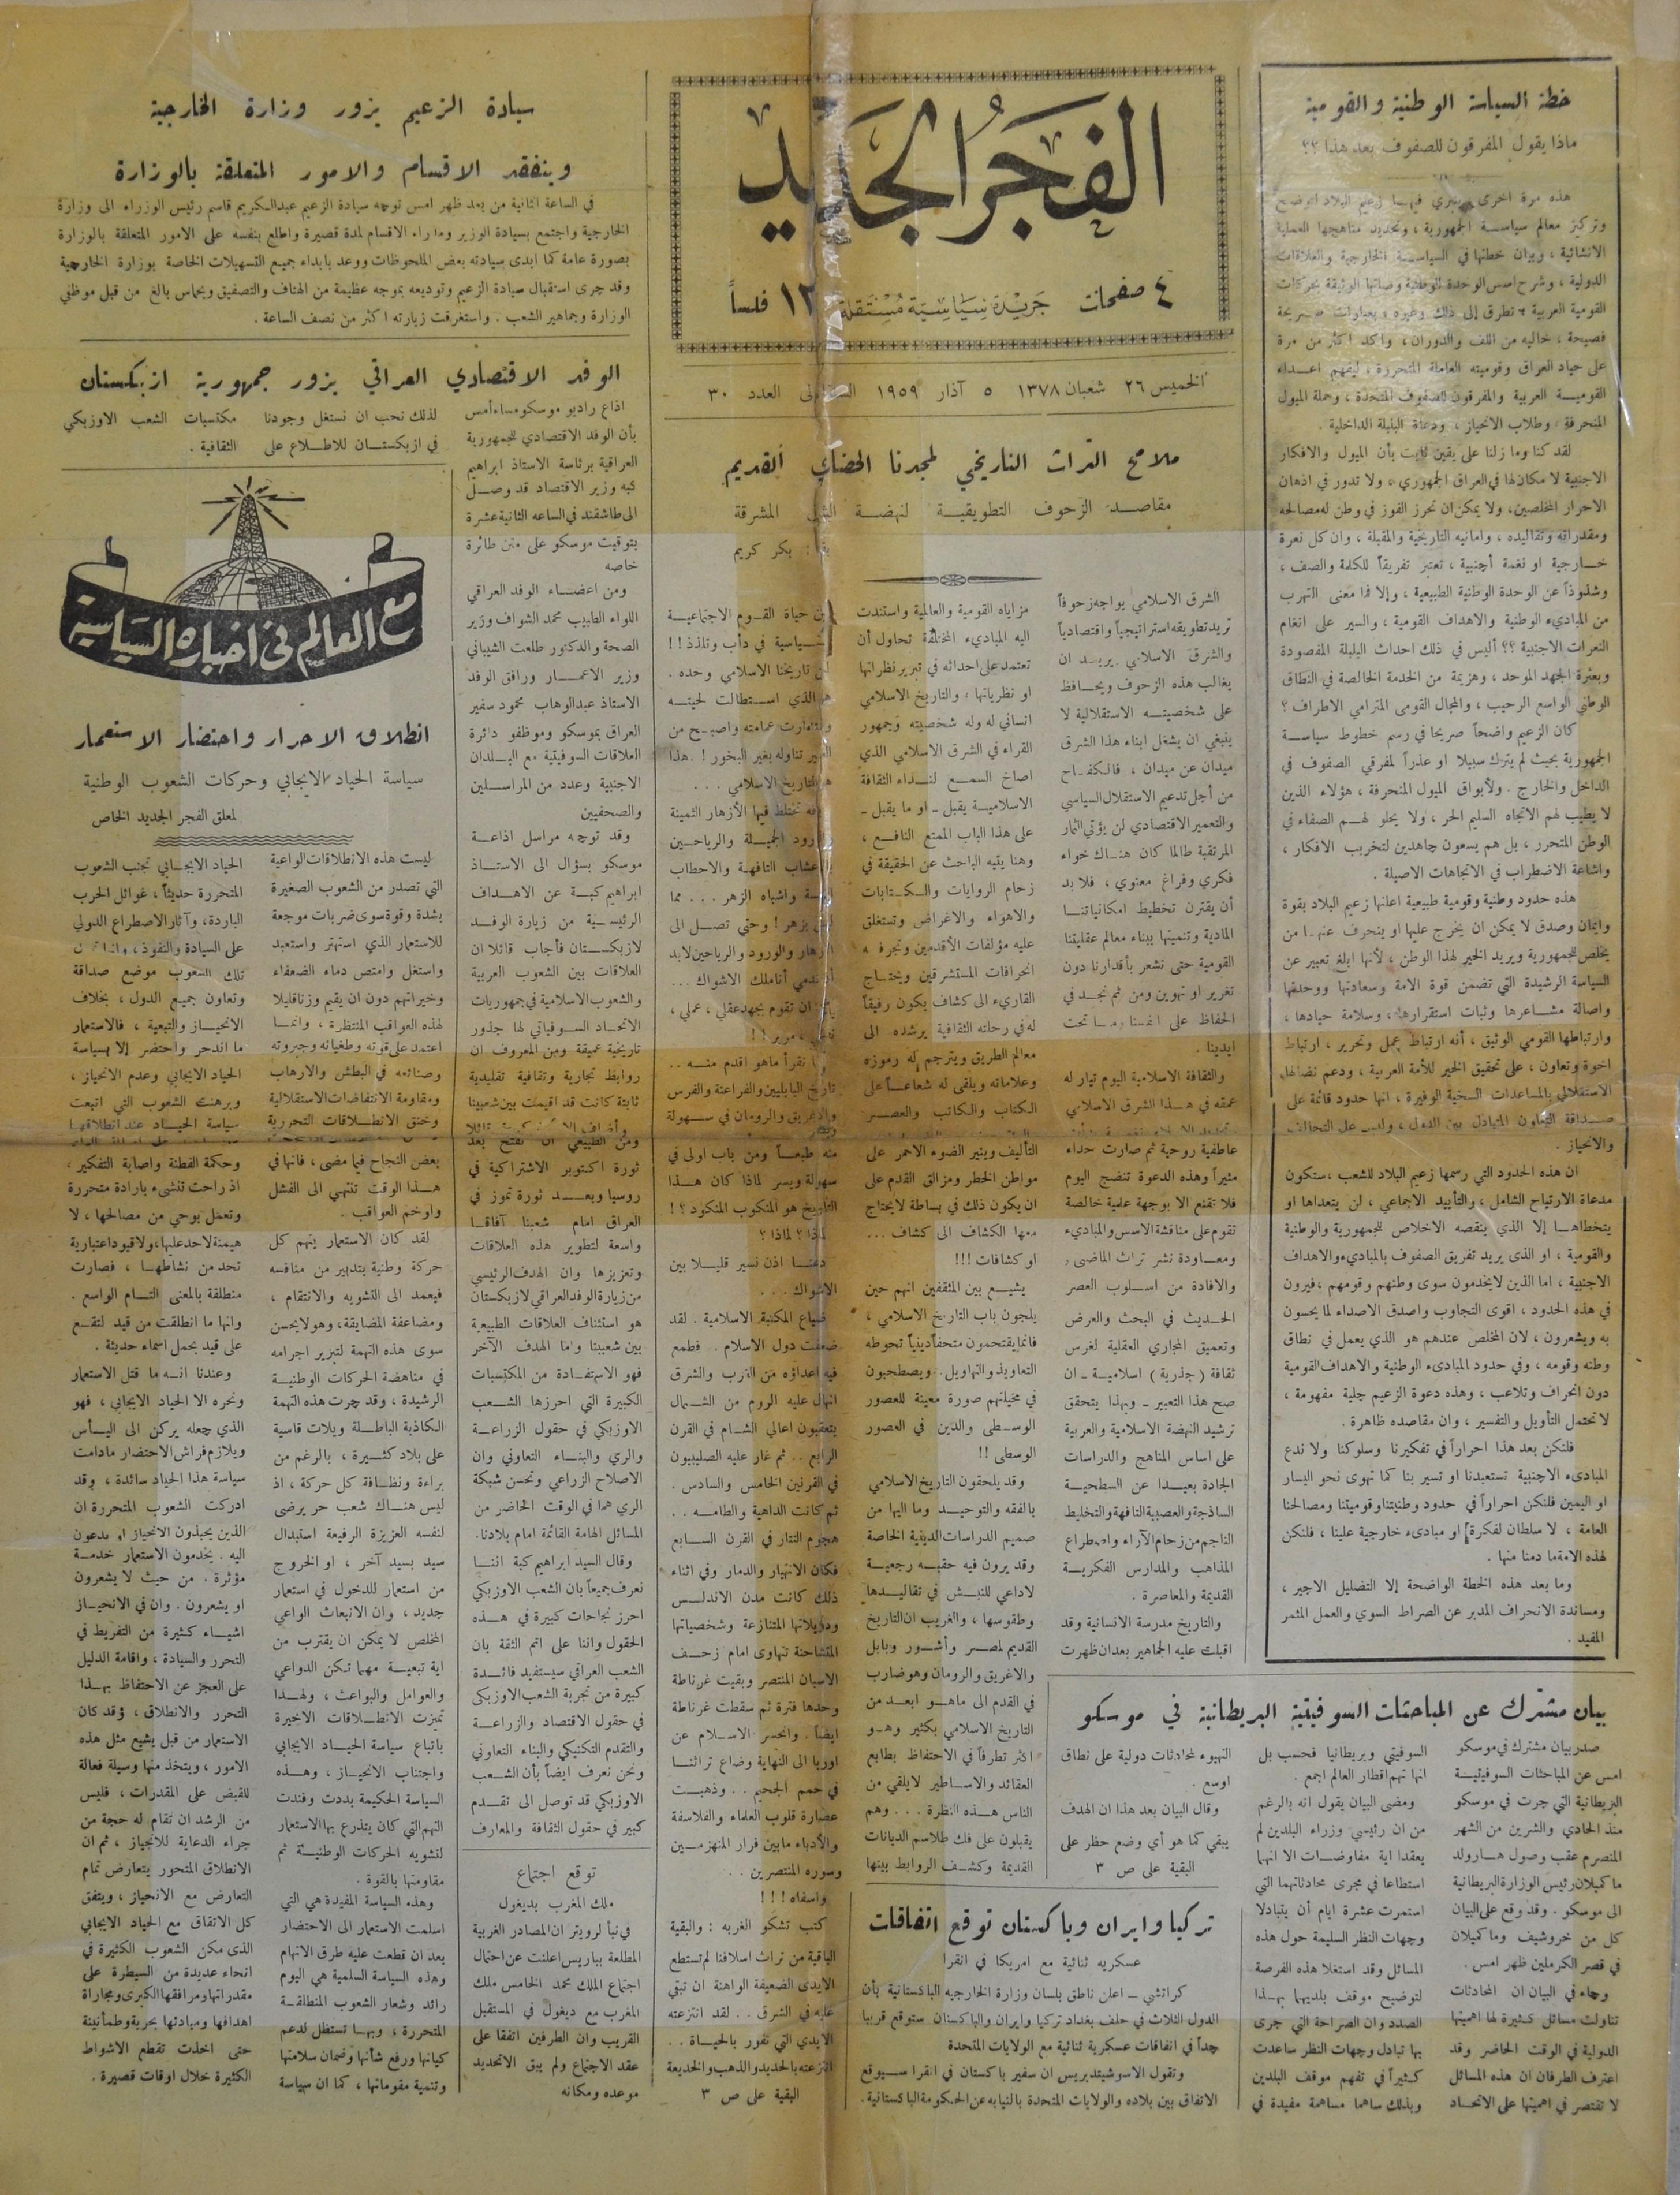 الفجر الجديد
٤ صفحات
جريدة سياسية مستقلة
١٢ فلساً
الخميس ٢٦ شعبان ١٣٧٨
٥ آذار ١٩٥٩
العدد ٣٠
خطة السياسة الوطنية والقومية
ماذا يقول المفرقون للصفوف بعد هذا ؟؟
هذه مرة اخرى
وتركيز معالم سياسة الجمهورية ، وتحديد مناهجها العملية
الانشائية ، وبيان خطتها في السياسة الخارجية والعلاقات
الدولية ، وشرح اسس الوحدة الوطنية وصلتها الوثيقة بحركات
فصيحة ، خالية من اللف والدوران ، واكد اكثر من مرة
على حياد العراق وقوميته العاملة المتحررة ، ليفهم اعداء
القومية العربية والمفرقون للصفوف المتحدة ، وحملة الميول
المنحرفة وطلاب الانحياز ، ودعاة البلبلة الداخلية .
لقد كنا وما زلنا على يقين ثابت بأن الميول والافكار
الاجنبية لا مكان لها في العراق الجمهوري ، ولا تدور في اذهان
الاحرار المخلصين ، ولا يمكن ان تحرز الفوز في وطن له مصالحه
ومقدراته وتقاليده ، وامانيه التاريخية والمقبلة ، وان كل نعرة
خارجية او نغمة أجنبية ، تعتبر تفريقاً للكلمة والصف ،
وشذوذاً عن الوحدة الوطنية الطبيعية ، وإلا فما معنى التهرب
من المباديء الوطنية والاهداف القومية ، والسير على انغام
النعرات الاجنبية ؟؟ أليس في ذلك احداث البلبلة المقصودة
وبعثرة الجهد الموحد ، وهزيمة من الخدمة الخالصة في النطاق
الوطني الواسع الرحيب ، والمجال القومى المترامي الاطراف ؟
كان الزعيم واضحاً صريحا في رسم خطوط سياسة
الجمهورية بحيث لم يترك سبيلا او عذراً لمفرقي الصفوف في
الداخل والخارج . ولأبواق الميول المنحرفة ، هؤلاء الذين
لا يطيب لهم الاتجاه السليم الحر ، ولا يحلو لهم الصفاء في
الوطن المتحرر ، بل هم يسعون جاهدين لتخريب الافكار ،
واشاعة الاضطراب في الاتجاهات الاصيلة .
هذه حدود وطنية وقومية طبيعية اعلنها زعيم البلاد بقوة
وايمان وصدق لا يمكن ان يخرج عليها او ينحرف عنها من
يخلص للجمهورية ويريد الخير لهذا الوطن ، لأنها ابلغ تعبير عن
السياسة الرشيدة التي تضمن قوة الامة وسعادتها ووحدتها
واصالة مشاعرها وثبات استقرارها ، وسلامة حيادها ،
وارتباطها القومي الوثيق ، أنه ارتباط عمل وتحرير ، ارتباط
اخوة وتعاون ، على تحقيق الخير للأمة العربية ، ودعم نضالها
الاستقلالي بالمساعدات السخية الوفيرة ، انها حدود قائمة على
والانحياز .
ان هذه الحدود التي رسمها زعيم البلاد للشعب ، ستكون
مدعاة الارتياح الشامل ، والتأييد الاجماعي ، لن يتعداها او
يتخطاها إلا الذي ينقصه الاخلاص للجمهورية والوطنية
والقومية ، او الذى يريد تفريق الصفوف بالمباديء والاهداف
الاجنبية ، اما الذين لا يخدمون سوى وطنهم وقومهم ، فيرون
في هذه الحدود ، اقوى التجاوب واصدق الاصداء لما يحسون
به ويشعرون ، لان المخلص عندهم هو الذي يعمل في نطاق
وطنه وقومه ، وفي حدود المبادىء الوطنية والاهداف القومية
دون انحراف وتلاعب ، وهذه دعوة الزعيم جلية مفهومة ،
لا تحتمل التأويل والتفسير ، وان مقاصده ظاهرة .
فلنكن بعد هذا احراراً في تفكيرنا وسلوكنا ولا ندع
المبادىء الاجنبية تستعبدنا او تسير بنا كما تهوى نحو اليسار
او اليمين فلنكن احراراً في حدود وطنيتنا وقوميتنا ومصالحنا
العامة ، لا سلطان لفكرة او مبادىء خارجية علينا ، فلنكن
لهذه الامة ما دمنا منها .
وما بعد هذه الخطة الواضحة إلا التضليل الاجير ،
ومساندة الانحراف المدبر عن الصراط السوي والعمل المثمر
المفيد .
ملامح التراث التاريخي لمجدنا الحضاري القديم
مقاصد الزحوف التطويقية لنهضة المشرقة
بكر كريم
الشرق الاسلامي يواجه زحوفاً
تريد تطويقه استراتيجياً واقتصادياً
والشرق الاسلامي يريد ان
يغالب هذه الزحوف ويحافظ
على شخصيته الاستقلالية لا
ينبغي ان يشغل ابناء هذا الشرق
ميدان عن ميدان ، فالكفاح
من أجل تدعيم الاستقلال السياسي
والتعمير الاقتصادي لن يؤتي الثمار
المرتقبة طالما كان هناك خواء
فكري وفراغ معنوي ، فلا بد
أن يقترن تخطيط امكانياتنا
المادية وتنميتها ببناء معالم عقليتنا
القومية حتى نشعر بأقدارنا دون
تغرير او تهوين ومن ثم نجد في
الحفاظ على انفسنا وما تحت
ايدينا .
والثقافة الاسلامية اليوم تيار له
عمقه في هذا الشرق الاسلامي
عاطفية روحية ثم صارت حداء
مثيراً وهذه الدعوة تنضج اليوم
فلا تقتنع الا بوجهة علمية خالصة
تقوم على مناقشة الاسس والمباديء
ومعاودة نشر تراث الماضي ،
والافادة من اسلوب العصر
الحديث في البحث والعرض
وتعميق المجاري العقلية لغرس
ثقافة ( جذرية ) اسلامية - ان
صح هذا التعبير - وبهذا يتحقق
ترشيد النهضة الاسلامية والعربية
على اساس المناهج والدراسات
الجادة بعيدا عن السطحية
الساذجة والعصبية التافهة والتخليط
الناجم من زحام الآراء واصطراع
المذاهب والمدارس الفكرية
القديمة والمعاصرة .
والتاريخ مدرسة الانسانية وقد
اقبلت عليه الجماهير بعد ان ظهرت
مزاياه القومية والعالمية واستندت
اليه المباديء المختلفة تحاول أن
تعتمد على احداثه في تبرير نظراتها
او نظرياتها ، والتاريخ الاسلامي
انساني له وله شخصيته وجمهور
القراء في الشرق الاسلامي الذي
اصاخ السمع لنداء الثقافة
الاسلامية يقبل - او ما يقبل -
على هذا الباب الممتع النافع ،
وهنا يقيه الباحث عن الحقيقة في
زحام الروايات والكتابات
والاهواء والاغراض وتستغلق
عليه مؤلفات الأقدمين وتجرفه
انحرافات المستشرقين ويحتاج
القاريء الى كشاف يكون رفيقاً
له في رحلته الثقافية يرشده الى
معالم الطريق ويترجم له رموزه
وعلاماته ويلقى له شعاعاً على
الكتاب والكاتب والعصر
التأليف وينير الضوء الاحمر على
مواطن الخطر ومزالق القدم على
ان يكون ذلك في بساطة لا يحتاج
معها الكشاف الى كشاف ...
او كشافات !!!
يشيع بين المثقفين انهم حين
يلجون باب التاريخ الاسلامي ،
فانما يقتحمون متحفاً دينياً تحوطه
التعاويذ والتهاويل . ويصطحبون
في مخيلتهم صورة معينة للعصور
الوسطى والدين في العصور
الوسطى !!
وقد يلحقون التاريخ الاسلامي
بالفقه والتوحيد وما اليها من
صميم الدراسات الدينية الخاصة
وقد يرون فيه حقبه رجعية
لا داعي للنبش في تقاليدها
وطقوسها ، والغريب ان التاريخ
القديم لمصر وأشور وبابل
والاغريق والرومان وهو ضارب
في القدم الى ماهو ابعد من
التاريخ الاسلامي بكثير وهو
اكثر تطرفاً في الاحتفاظ بطابع
العقائد والاساطير لا يلقي من
الناس هذه النظرة ... وهم
يقبلون على فك طلاسم الديانات
القديمة وكشف الروابط بينها
بين حياة القوم الاجتماعية
والسياسية في دأب وتلذذ !!
تاريخنا الاسلامي وحده .
الذي استطالت لحيته
عمامته واصبح من
تناوله بغير البخور ! هذا
التاريخ الاسلامي ...
تختلط فيها الأزهار الثمينة
والورود الجميلة والرياحين
التافهة والاحطاب
واشباه الزهر ... مما
يزهر ! وحتى تصل الى
والورود والرياحين لا بد
تدمي أناملك الاشواك ...
ان تقوم بجهد عقلي ، عملي ،
، مرير !!
نقرأ ماهو اقدم منه ..
تاريخ البابليين والفراعنة والفرس
والاغريق والرومان في سهولة
منه طبعاً ومن باب اولى في
سهولة ويسر لماذا كان هذا
التاريخ هو المنكوب المنكود ؟!
لماذا ؟ لماذا ؟
دعنا اذن نسير قليلا بين
الاشواك ...
ضياع المكتبة الاسلامية . لقد
ضعفت دول الاسلام .. فطمع
فيه اعداؤه من الغرب والشرق
انهال عليه الروم من الشمال
يتعقبون اعالي الشام في القرن
الرابع .. ثم غار عليه الصليبيون
في القرنين الخامس والسادس .
ثم كانت الداهية والطامه ..
هجوم التتار في القرن السابع
فكان الانهيار والدمار وفي اثناء
ذلك كانت مدن الاندلس
ودويلاتها المتنازعة وشخصياتها
المتشاحنة تتهاوى امام زحف
الاسبان المنتصر وبقيت غرناطة
وحدها فترة ثم سقطت غرناطة
ايضاً . وانحسر الاسلام عن
اوربا الى النهاية وضاع تراثنا
في حمم الجحيم .. وذهبت
عصارة قلوب العلماء والفلاسفة
والأدباء مابين فرار المنهزمين
وسوره المنتصرين ..
واسفاه !!!
كتب تشكو الغربه : والبقية
الباقية من تراث اسلافنا لم تستطع
الايدى الضعيفة الواهنة ان تبقي
عليه في الشرق .. لقد انتزعته
الايدي التي تفور بالحياة ..
انتزعته بالحديد والذهب والخديعة
البقية على ص ٣
سيادة الزعيم يزور وزارة الخارجية
ويتفقد الاقسام والامور المتعلقة بالوزارة
في الساعة الثانية من بعد ظهر امس توجه سيادة الزعيم عبدالكريم قاسم رئيس الوزراء الى وزارة
الخارجية واجتمع بسيادة الوزير ومدراء الاقسام لمدة قصيرة واطلع بنفسه على الامور المتعلقة بالوزارة
بصورة عامة كما ابدى سيادته بعض الملحوظات ووعد بابداء جميع التسهيلات الخاصة بوزارة الخارجية
وقد جرى استقبال سيادة الزعيم وتوديعه بموجه عظيمة من الهتاف والتصفيق وبحماس بالغ من قبل موظفي
الوزارة وجماهير الشعب . واستغرقت زيارته اكثر من نصف الساعة .
الوفد الاقتصادي العراقي يزور جمهورية ازبكستان
اذاع راديو موسكو مساء أمس
بأن الوفد الاقتصادي للجمهورية
العراقية برئاسة الاستاذ ابراهيم
كبه وزير الاقتصاد قد وصل
الى طاشقند في الساعه الثانية عشرة
بتوقيت موسكو على متن طائرة
خاصه
ومن اعضاء الوفد العراقي
اللواء الطبيب محمد الشواف وزير
الصحة والدكتور طلعت الشيباني
وزير الاعمار ورافق الوفد
الاستاذ عبدالوهاب محمود سفير
العراق بموسكو وموظفو دائرة
العلاقات السوفيتية مع البلدان
الاجنبية وعدد من المراسلين
والصحفيين
وقد توجه مراسل اذاعة
موسكو بسؤال الى الاستاذ
ابراهيم كبة عن الاهداف
الرئيسية من زيارة الوفد
لازبكستان فأجاب قائلا ان
العلاقات بين الشعوب العربية
والشعوب الاسلامية في جمهوريات
الاتحاد السوفياتي لها جذور
تاريخية عميقة ومن المعروف ان
روابط تجارية وثقافية تقليدية
ثابتة كانت قد اقيمت بين شعبينا
ومن الطبيعي ان تفتح بعد
ثورة اكتوبر الاشتراكية في
روسيا وبعد ثورة تموز في
العراق امام شعبينا آفاقا
واسعة لتطوير هذه العلاقات
وتعزيزها وان الهدف الرئيسي
من زيارة الوفد العراقي لازبكستان
هو استئناف العلاقات الطبيعية
بين شعبينا واما الهدف الآخر
فهو الاستفادة من المكتسبات
الكبيرة التي احرزها الشعب
الاوزبكي في حقول الزراعة
والري والبناء التعاوني وان
الاصلاح الزراعي وتحسن شبكة
الري هما في الوقت الحاضر من
المسائل الهامة القائمة امام بلادنا.
وقال السيد ابراهيم كبة اننا
نعرف جميعاً بان الشعب الاوزبكي
احرز نجاحات كبيرة في هذه
الحقول واننا على اتم الثقة بان
الشعب العراقي سيستفيد فائدة
كبيرة من تجربة الشعب الاوزبكي
في حقول الاقتصاد والزراعة
والتقدم التكنيكي والبناء التعاوني
ونحن نعرف ايضاً بأن الشعب
الاوزبكي قد توصل الى تقدم
كبير في حقول الثقافة والمعارف
لذلك نحب ان نستغل وجودنا
في ازبكستان للاطلاع على
مكتسبات الشعب الاوزبكي
الثقافية .
توقع اجتماع
ملك المغرب بديغول
في نبأ لرويتر ان المصادر الغربية
المطلعة بباريس اعلنت عن احتمال
اجتماع الملك محمد الخامس ملك
المغرب مع ديغول في المستقبل
القريب وان الطرفين اتفقا على
عقد الاجتماع ولم يبق الا تحديد
موعده ومكانه
مع العالم في اخباره السياسية
انطلاق الاحرار واحتضار الاستعمار
سياسة الحياد الايجابي وحركات الشعوب الوطنية
لمعلق الفجر الجديد الخاص
ليست هذه الانطلاقات الواعية
التي تصدر من الشعوب الصغيرة
بشدة وقوة سوى ضربات موجعة
للاستعمار الذي استهتر واستعبد
واستغل وامتص دماء الضعفاء
وخيراتهم دون ان يقيم وزنا قليلا
لهذه العواقب المنتظرة ، وانما
اعتمد على قوته وطغيانه وجبروته
وصنائعه في البطش والارهاب
ومقاومة الانتفاضات الاستقلالية
وخنق الانطلاقات التحررية
بعض النجاح فيما مضى ، فانها في
هذا الوقت تنتهي الى الفشل
واوخم العواقب .
لقد كان الاستعمار يتهم كل
حركة وطنية بتدبير من منافسه
فيعمد الى التشويه والانتقام ،
ومضاعفة المضايقة ، وهو لا يحسن
سوى هذه التهمة لتبرير اجرامه
في مناهضة الحركات الوطنية
الرشيدة ، وقد جرت هذه التهمة
الكاذبة الباطلة ويلات قاسية
على بلاد كثيرة ، بالرغم من
براءة ونظافة كل حركة ، اذ
ليس هناك شعب حر يرضى
لنفسه العزيزة الرفيعة استبدال
سيد بسيد آخر ، او الخروج
من استعمار للدخول في استعمار
جديد ، وان الانبعاث الواعي
المخلص لا يمكن ان يقترب من
اية تبعية مهما تكن الدواعي
والعوامل والبواعث ، ولهذا
تميزت الانطلاقات الاخيرة
باتباع سياسة الحياد الايجابي
واجتناب الانحياز ، وهذه
السياسة الحكيمة بددت وفندت
التهم التي كان يتذرع بها الاستعمار
لتشويه الحركات الوطنية ثم
مقاومتها بالقوة .
وهذه السياسة المفيدة هي التي
اسلمت الاستعمار الى الاحتضار
بعد ان قطعت عليه طرق الاتهام
وهذه السياسة السلمية هي اليوم
رائد وشعار الشعوب المنطلقة
المتحررة ، وبها تستظل لدعم
كيانها ورفع شأنها وضمان سلامتها
وتنمية مقوماتها ، كما ان سياسة
الحياد الايجابي تجنب الشعوب
المتحررة حديثاً ، غوائل الحرب
الباردة ، وآثار الاصطراع الدولي
على السيادة والنفوذ ،
تلك الشعوب موضع صداقة
وتعاون جميع الدول ، بخلاف
الانحياز والتبعية ، فالاستعمار
ما اندحر واحتضر إلا بسياسة
الحياد الايجابي وعدم الانحياز ،
وبرهنت الشعوب التي اتبعت
سياسة الحياد عند انطلاقها
وحكمة الفطنة واصابة التفكير ،
اذ راحت تنشيء بارادة متحررة
وتعمل بوحي من مصالحها ، لا
هيمنة لاحد عليها ، ولا قيود اعتبارية
تحد من نشاطها ، فصارت
منطلقة بالمعنى التام الواسع .
وانها ما انطلقت من قيد لتقع
على قيد يحمل اسماء حديثة .
وعندنا انه ما قتل الاستعمار
ونحره الا الحياد الايجابي ، فهو
الذي جعله يركن الى اليأس
ويلازم فراش الاحتضار مادامت
سياسة هذا الحياد سائدة ، وقد
ادركت الشعوب المتحررة ان
الذين يحبذون الانحياز او يدعون
اليه . يخدمون الاستعمار خدمة
مؤثرة . من حيث لا يشعرون
او يشعرون . وان في الانحياز
اشياء كثيرة من التفريط في
التحرر والسيادة ، واقامة الدليل
على العجز عن الاحتفاظ بهذا
التحرر والانطلاق ، وقد كان
الاستعمار من قبل يشيع مثل هذه
الامور ، ويتخذ منها وسيلة فعالة
للقبض على المقدرات ، فليس
من الرشد ان تقام له حجة من
جراء الدعاية للانحياز ، ثم ان
الانطلاق المتحرر يتعارض تمام
التعارض مع الانحياز ، ويتفق
كل الاتفاق مع الحياد الايجابي
الذى مكن الشعوب الكثيرة في
انحاء عديدة من السيطرة على
مقدراتها ومرافقها الكبرى ومجاراة
اهدافها ومبادئها بحرية وطمأنينة
حتى اخذت تقطع الاشواط
الكثيرة خلال اوقات قصيرة .
بيان مشترك عن المباحثات السوفيتية البريطانية في موسكو
صدر بيان مشترك في موسكو
امس عن المباحثات السوفيتية
البريطانية التي جرت في موسكو
منذ الحادي والشرين من الشهر
المنصرم عقب وصول هارولد
ماكميلان رئيس الوزارة البريطانية
الى موسكو . وقد وقع على البيان
كل من خروشيف وماكميلان
في قصر الكرملين ظهر امس .
وجاء في البيان ان المحادثات
تناولت مسائل كثيرة لها اهميتها
الدولية في الوقت الحاضر وقد
اعترف الطرفان ان هذه المسائل
لا تقتصر في اهميتها على الاتحاد
السوفيتي وبريطانيا فحسب بل
انها تهم اقطار العالم اجمع .
ومضى البيان يقول انه بالرغم
من ان رئيسي وزراء البلدين لم
يعقدا اية مفاوضات الا انهما
استطاعا في مجرى محادثاتهما التي
استمرت عشرة ايام أن يتبادلا
وجهات النظر السليمة حول هذه
المسائل وقد استغلا هذه الفرصة
لتوضيح موقف بلديهما بهذا
الصدد وان الصراحة التي جرى
بها تبادل وجهات النظر ساعدت
كثيراً في تفهم موقف البلدين
وبذلك ساهما مساهمة مفيدة في
التهيوء لمحادثات دولية على نطاق
اوسع .
وقال البيان بعد هذا ان الهدف
يبقي كما هو أي وضع حظر على
البقية على ص ٣
تركيا وايران وباكستان توقع اتفاقات
عسكريه ثنائية مع امريكا في انقرا
كراتشي - اعلن ناطق بلسان وزارة الخارجيه الباكستانية بأن
الدول الثلاث في حلف بغداد تركيا وايران والباكستان ستوقع قريبا
جداً في اتفاقات عسكرية ثنائية مع الولايات المتحدة
وتقول الاسوشيتدبريس ان سفير باكستان في انقرا سيوقع
الاتفاق بين بلاده والولايات المتحدة بالنيابه عن الحكومة الباكستانية.